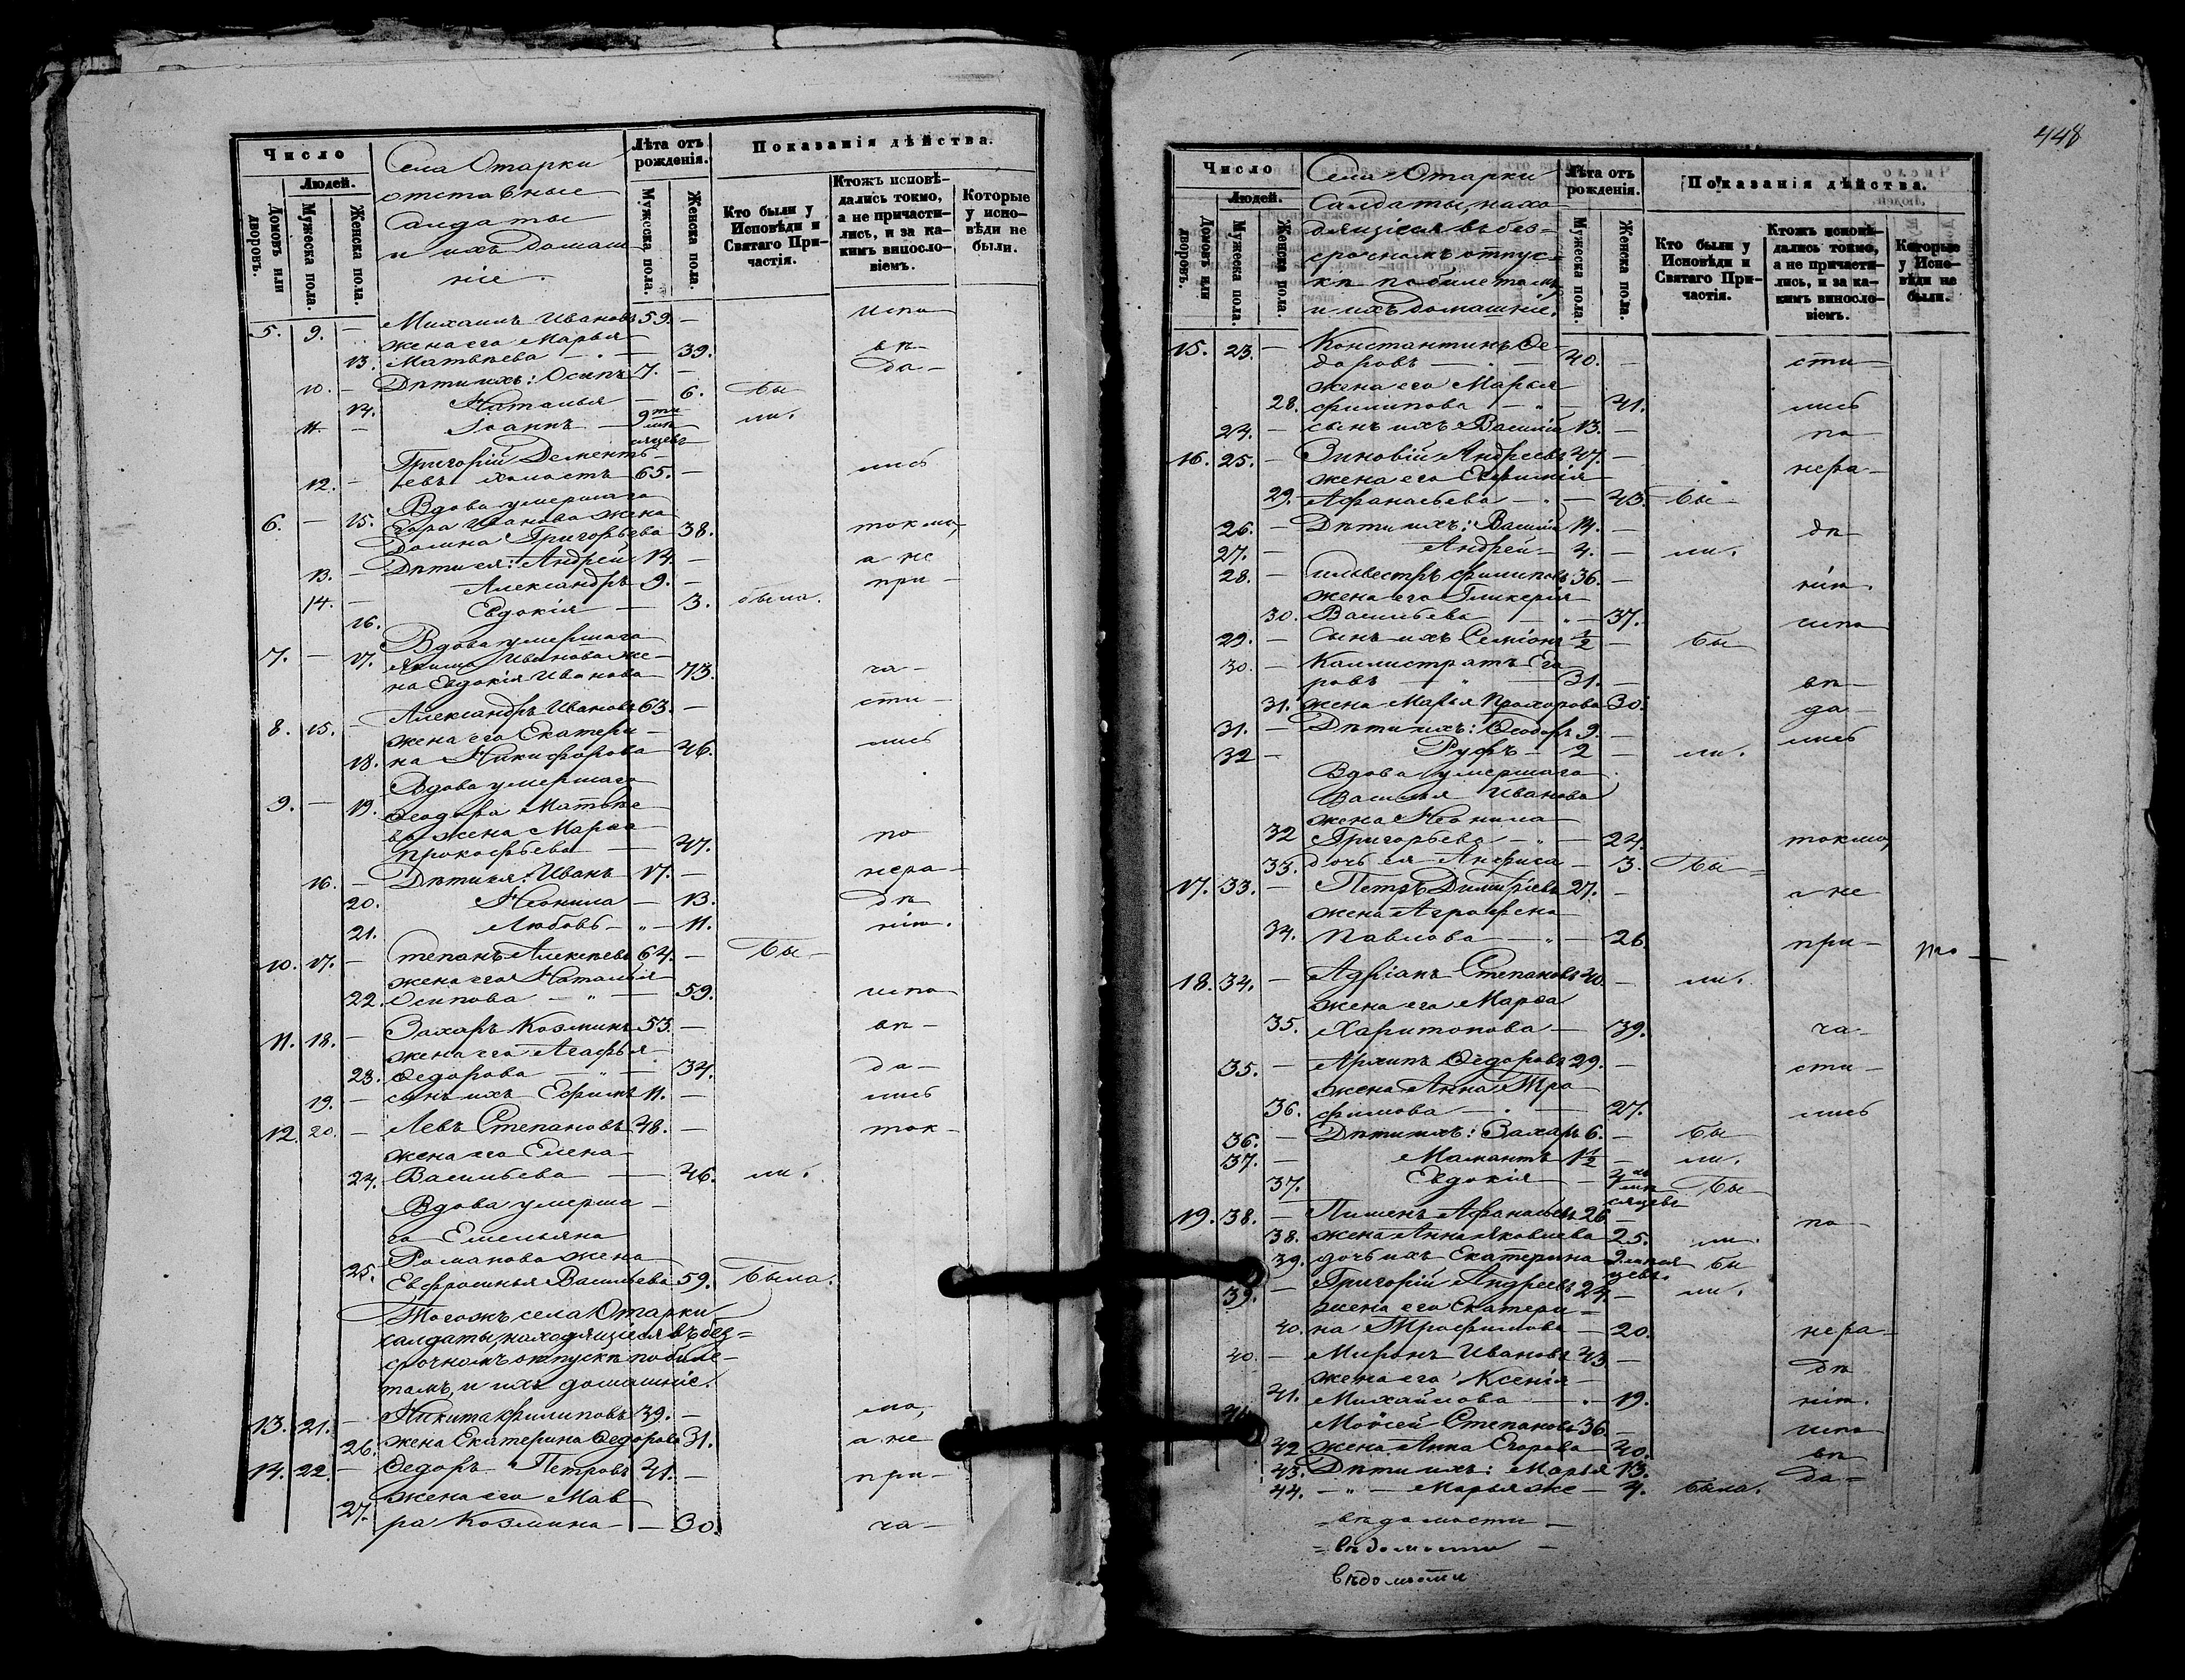 Число
Людей.
Домовъ или дворовъ.
Мужеска пола.
Женска пола.
Села Отарки
отставные
Салдаты
и ихъ домаш
ніе.
Лѣта отъ рожденія.
Мужеска пола.
Женска пола.
Показанія дѣйства.
Кто были у Исповѣди и Святаго Причастія.
Ктожъ исповѣдались токмо, а не причастились, и за какимъ винословіемъ.
Которые у исповѣди не были.
5. 9. — Михаилъ Ивановъ 59. — испо
жена его Марья
13. Матвѣева — " — 39. вѣ—
10. — Дѣти ихъ: Осипъ 7. — да—
14. Наталья — 6. бы
11. — Іоаннъ — 9ти мѣ ли.
сяцевъ
Григорій Дементь-
12. — евъ холостъ 65. — лись
Вдова умершаго
6. — 15. Егора Иванова жена
Григорьева 38. токмо,
13. — Дѣти ея: Андрей 14. — а не
14. — Александръ 9. — при—
16. Евдокія — 3. была.
Вдова умершаго
7. — 17. Якима Иванова же-
на Евдокія Иванова 73. ча—
8. 15. — Александръ Ивановъ 63. — сти—
жена его Екатери-
18. на Никифорова 46. лись
Вдова умершаго
9. — 19. Ѳеодора Матвѣе
ва жена Марѳа
Прокофьева — 47. по
16. — Дѣти ея: Иванъ 17. — нера—
20. Неонила — 13. дѣ
21. Любовь — " — 11. нію.
10. 17. — Степанъ Алексѣевъ 64. — Бы—
жена его Наталья
22. Осипова — " — 59. испо
11. 18. — Захаръ Козминъ 53. — вѣ—
жена его Агафья
23. Ѳедорова — " — 34. да—
19. — сынъ ихъ Ефимъ 11. — лись
12. 20. — Левъ Степановъ 48. — ток—
жена его Елена
24. Васильева — 46. ли.
Вдова умерша—
го Емельяна
Романова жена
25. Евфросинья Васильева 59. Была.
Тогожъ села Отарки
салдаты, находящіеся въ без=
срочномъ отпуску по биле—
тамъ, и ихъ домашніе.
13. 21. — Никита Филиповъ 39. — мо,
26. жена Екатерина Ѳедорова 31. а не
14. 22. — Ѳедоръ Петровъ 41. — при—
жена его Мав
27. ра Козмина — 30. ча—
448
Число
Людей.
Домовъ или дворовъ.
Мужеска пола.
Женска пола.
Села Отарки
Салдаты, нахо
дящіеся въ без=
срочномъ отпус=
кѣ по билетамъ,
и ихъ домашніе.
Лѣта отъ рожденія.
Мужеска пола.
Женска пола.
Показанія дѣйства.
Кто были у Исповѣди и Святаго Причастія.
Ктожъ исповѣдались токмо, а не причастились, и за какимъ винословіемъ.
Которые у Исповѣди не были.
15. 23. — Константинъ Ѳе—
доровъ — 40. — сти—
жена его Марья
28. Филипова — " — 41. лись
24. — сынъ ихъ Василій 13. — по
16. 25. — Зиновій Андреевъ 47. — нера—
жена его Евфимія
29. Афанасьева — " — 45. Бы—
26. — Дѣти ихъ: Василій 14. — дѣ
27. — Андрей 4. — ли.
28. — Сильвестръ Филиповъ 36. — нію.
жена его Гликерія
30. Васильева — 37. испо
29. — Сынъ ихъ Семіонъ 1/2 — Бы
30. — Каллистратъ Его
ровъ — " — 31. — вѣ—
31. жена Марья Прохорова 30. да—
31. — Дѣти ихъ: Ѳеодоръ 9. — лись
32 — Руфъ — 2 — ли.
Вдова умершаго
Василья Иванова
жена Неонила
32 Григорьева — " — 24. токмо,
33. дочь ея Анфиса — 3. Бы—
17. 33. — Петръ Димитріевъ 27. — а не
жена Агрофена
34. Павлова — " — 26. при— по
18. 34. — Адріанъ Степановъ 40. — ли.
жена его Марѳа
35. Харитонова — 39. ча—
35. — Архипъ Ѳедоровъ 29. — сти—
жена Анна Тро
36. фимова — " — 27. лись
36. — Дѣти ихъ: Захаръ 6. — бы
37. — Мамантъ 1 1/2 — ли.
37. Евдокія — 4 мѣ Бы
сяцевъ
19. 38. — Пименъ Афанасьевъ 26 — по
38. жена Анна Яковлева 25. ли.
39. дочь ихъ Екатерина 9 мѣся бы
цевъ.
39. — Григорій Андреевъ 24. — ли.
жена его Екатери—
40. на Трофимова — 20. нера—
40. — Миронъ Ивановъ 43 — дѣ
жена его Ксенія
41. Михайлова — 19. нію.
41. Моѵсей Степановъ 36 — испо
42 жена Анна Егорова 40. вѣ
43. Дѣти ихъ: Марья 13. да=
44. — " — Марья же — 4. была.
=вѣдомости —
=вѣдомости —
вѣдомости